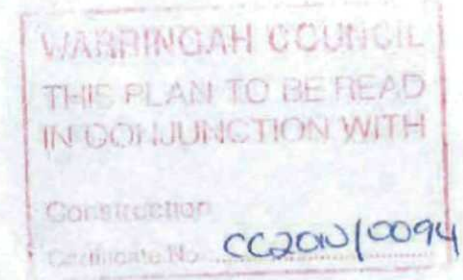 WARRINGAH COUNCIL
THIS PLAN TO BE READ
IN CONJUNCTION WITH
Construction
Certificate No